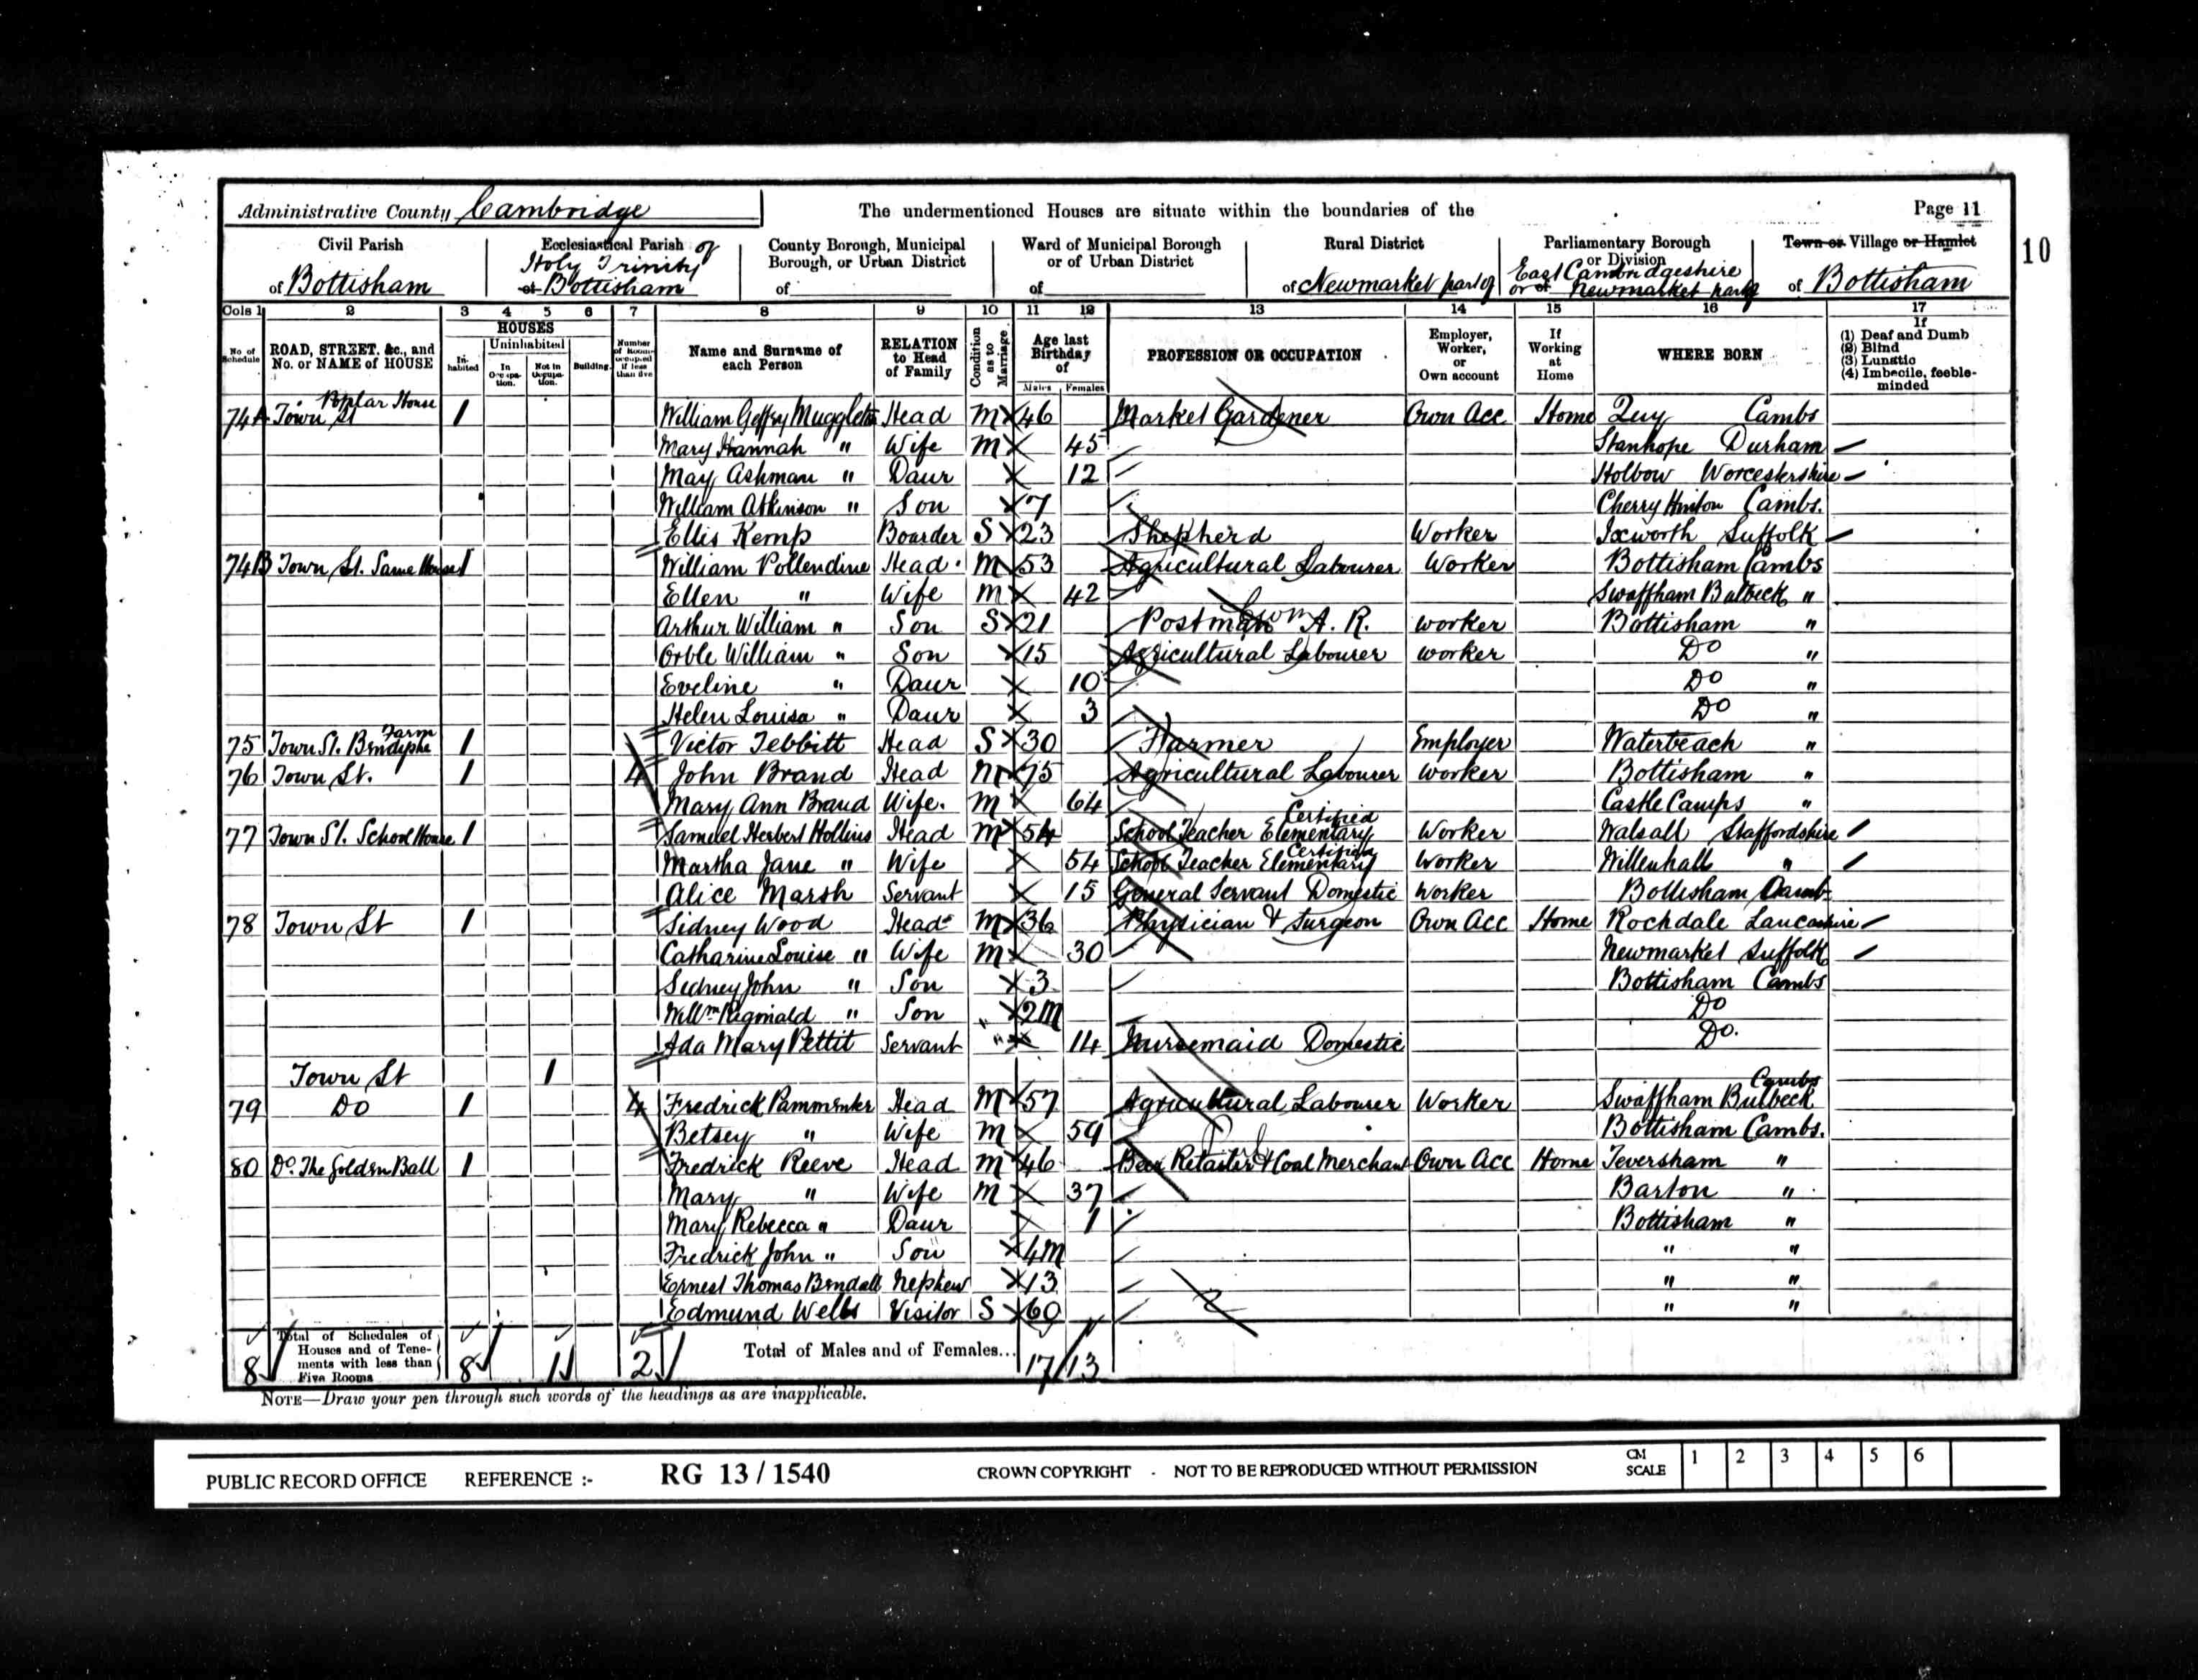 Administrative County Cambridge
The undermentioned Houses are situate within the boundaries of the
Page 11
10
Civil Parish of Bottisham
Ecclesiastical Parish of Holy Trinity of Bottisham
County Borough, Municipal Borough, or Urban District of
Ward of Municipal Borough or of Urban District of
Rural District of Newmarket part of
Parliamentary Borough or Division of East Cambridgeshire or Newmarket part of
Town or Village or Hamlet of Bottisham
Cols 1 2 3 4 5 6 7 8 9 10 11 12 13 14 15 16 17
No of Schedule
ROAD, STREET, &c., and No. or NAME of HOUSE
HOUSES
In-habited
Uninhabited
In Occupa-tion.
Not in Occupa-tion.
Building.
Number of Rooms occupied if less than five
Name and Surname of each Person
RELATION to Head of Family
Condition as to Marriage
Age last Birthday of
Males Females
PROFESSION OR OCCUPATION
Employer, Worker, or Own account
If Working at Home
WHERE BORN
If (1) Deaf and Dumb (2) Blind (3) Lunatic (4) Imbecile, feeble-minded
74A Town St Poplar House 1 William Geffry Muggleton Head M 46 Market Gardener Own Acc Home Quy Cambs
Mary Hannah " Wife M 45 Stanhope Durham
May Ashman " Daur 12 Worcestershire
William Atkinson " Son 7 Cherry Hinton Cambs.
Ellis Kemp Boarder S 23 Shepherd Worker Ixworth Suffolk
74B Town St. Same House 1 William Pollendine Head M 53 Agricultural Labourer Worker Bottisham Cambs
Ellen " Wife M 42 Swaffham Bulbeck "
Arthur William " Son S 21 Postman A. R. worker Bottisham "
Orble William " Son 15 Agricultural Labourer worker Do "
Eveline " Daur 10 Do "
Helen Louisa " Daur 3 Do "
75 Town St. Farm 1 Victor Tebbitt Head S 30 Farmer Employer Waterbeach "
76 Town St. 1 4 John Brand Head M 75 Agricultural Labourer worker Bottisham "
Mary Ann Brand Wife. M 64 Castle Camps "
77 Town St. School House 1 Samuel Herbert Hollins Head M 54 School Teacher Elementary Certified Worker Walsall Staffordshire
Martha Jane " Wife 54 School Teacher Elementary Certified Worker Willenhall "
Alice Marsh Servant 15 General Servant Domestic Worker Bottisham Camb
78 Town St 1 Sidney Wood Head M 36 Physician & Surgeon Own Acc Home Rockdale Lancashire
Catharine Louise " Wife M 30 Newmarket Suffolk
Sidney John " Son 3 Bottisham Cambs
Willm Reginald " Son 2m Do
Ada Mary Pettit Servant 14 Nursemaid Domestic Do.
Town St 1
79 Do 1 4 Fredrick Pammenter Head M 57 Agricultural Labourer Worker Swaffham Bulbeck Cambs
Betsey " Wife M 59 Bottisham Cambs.
80 Do. The Golden Ball 1 Fredrick Reeve Head M 46 Beer Retailer & Coal Merchant Own Acc Home Teversham "
Mary " Wife M 37 Barton "
Mary Rebecca " Daur 1 Bottisham "
Fredrick John " Son 4m " "
Ernest Thomas Bendall Nephew 13 " "
Edmund Wells Visitor S 60 " "
8 Total of Schedules of Houses and of Tene-ments with less than Five Rooms 8 1 2 Total of Males and of Females... 17 13
NOTE—Draw your pen through such words of the headings as are inapplicable.
PUBLIC RECORD OFFICE REFERENCE :- RG 13 / 1540 CROWN COPYRIGHT - NOT TO BE REPRODUCED WITHOUT PERMISSION CM SCALE 1 2 3 4 5 6